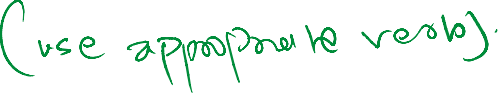 (use appropriate verbs).